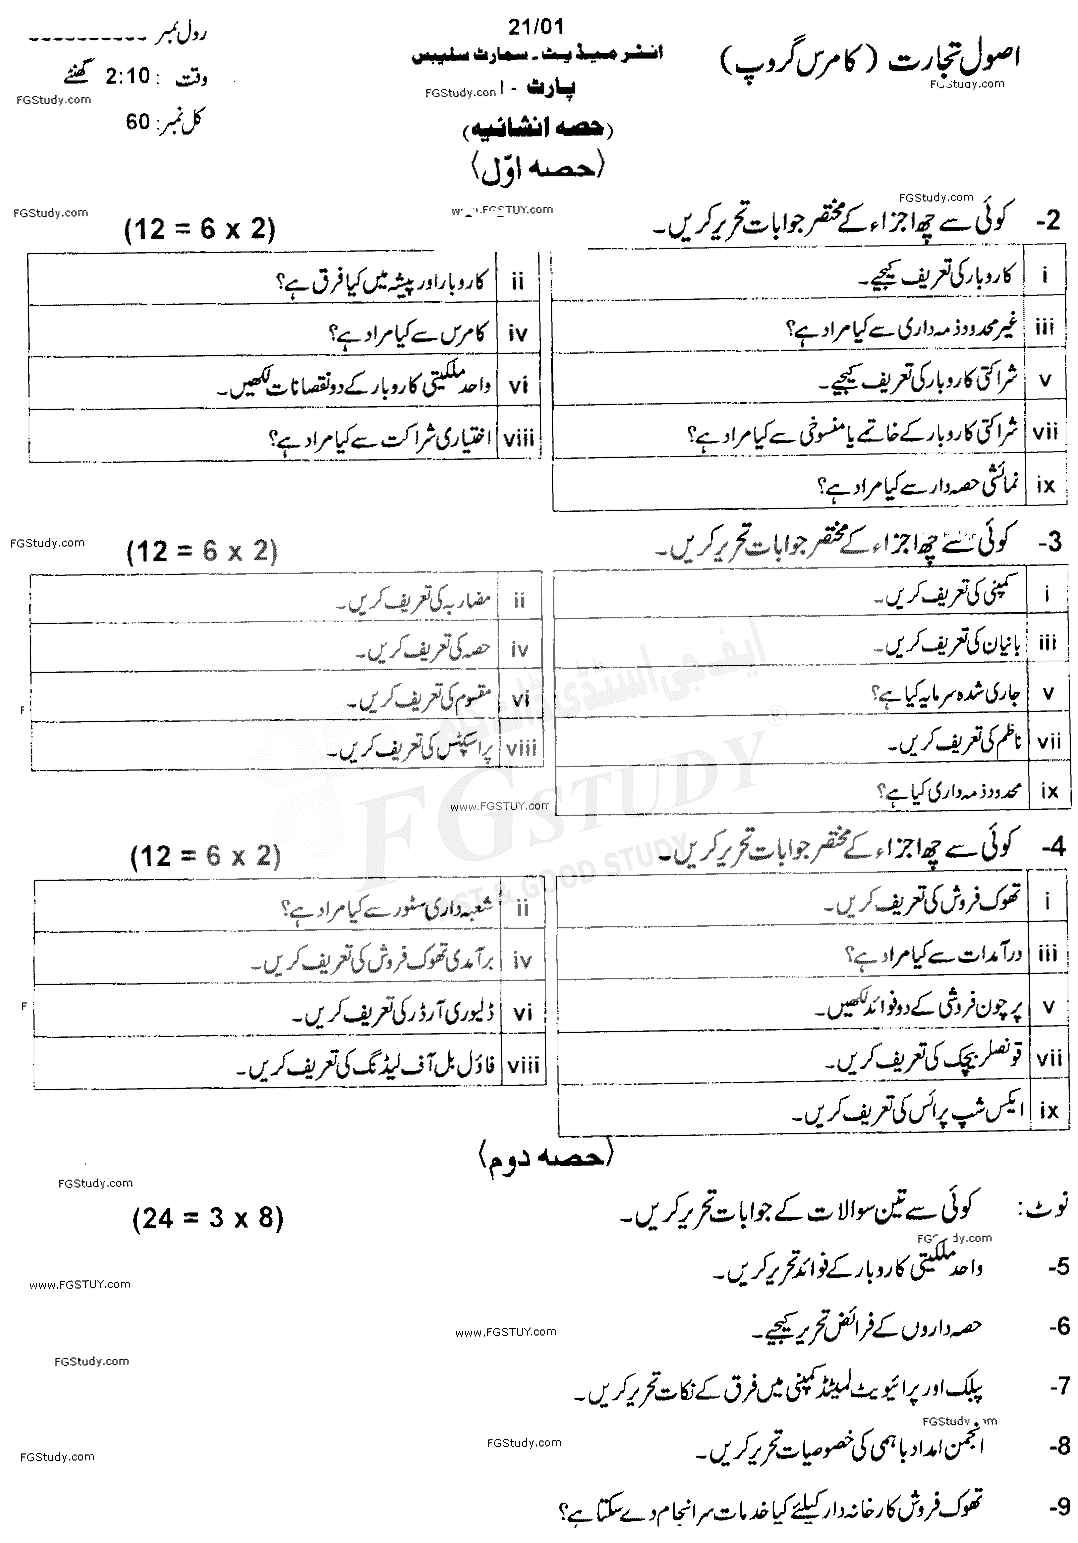 21/01
رول نمبر ----------
انٹرمیڈیٹ۔ سمارٹ سلیبس
اصول تجارت (کامرس گروپ)
وقت : 2:10 گھنٹے
پارٹ - I
FGStudy.com
FGStudy.com
کل نمبر: 60
(حصہ انشائیہ)
(حصہ اوّل)
FGStudy.com
FGStudy.com
2- کوئی سے چھ اجزاء کے مختصر جوابات تحریر کریں۔ (12 = 6 x 2)
i کاروبار کی تعریف کیجیے۔
ii کاروبار اور پیشہ میں کیا فرق ہے؟
iii غیر محدود ذمہ داری سے کیا مراد ہے؟
iv کامرس سے کیا مراد ہے؟
v شراکتی کاروبار کی تعریف کیجیے۔
vi واحد ملکیتی کاروبار کے دو نقصانات لکھیں۔
vii شراکتی کاروبار کے خاتمے یا منسوخی سے کیا مراد ہے؟
viii اختیاری شراکت سے کیا مراد ہے؟
ix نمائشی حصہ دار سے کیا مراد ہے؟
FGStudy.com
3- کوئی سے چھ اجزاء کے مختصر جوابات تحریر کریں۔ (12 = 6 x 2)
i کمپنی کی تعریف کریں۔
ii مضاربہ کی تعریف کریں۔
iii بانیان کی تعریف کریں۔
iv حصہ کی تعریف کریں۔
v جاری شدہ سرمایہ کیا ہے؟
vi مقسوم کی تعریف کریں۔
vii ناظم کی تعریف کریں۔
viii پراسپکٹس کی تعریف کریں۔
ix محدود ذمہ داری کیا ہے؟
FGSTUDY
www.FGSTUY.com
4- کوئی سے چھ اجزاء کے مختصر جوابات تحریر کریں۔ (12 = 6 x 2)
i تھوک فروش کی تعریف کریں۔
ii شعبہ داری سٹور سے کیا مراد ہے؟
iii درآمدات سے کیا مراد ہے؟
iv برآمدی تھوک فروش کی تعریف کریں۔
v پرچون فروشی کے دو فوائد لکھیں۔
vi ڈلیوری آرڈر کی تعریف کریں۔
vii قونصلر بیجک کی تعریف کریں۔
viii فاؤل بل آف لیڈنگ کی تعریف کریں۔
ix ایکس شپ پرائس کی تعریف کریں۔
(حصہ دوم)
FGStudy.com
نوٹ: کوئی سے تین سوالات کے جوابات تحریر کریں۔ (24 = 3 x 8)
5- واحد ملکیتی کاروبار کے فوائد تحریر کریں۔
www.FGSTUY.com
6- حصہ داروں کے فرائض تحریر کیجیے۔
www.FGSTUY.com
FGStudy.com
7- پبلک اور پرائیویٹ لمیٹڈ کمپنی میں فرق کے نکات تحریر کریں۔
8- انجمن امداد باہمی کی خصوصیات تحریر کریں۔
FGStudy.com
FGStudy.com
9- تھوک فروش کارخانہ دار کیلئے کیا خدمات سرانجام دے سکتا ہے؟